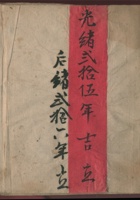 光緒弍拾伍年吉立
后緒弍拾六年立